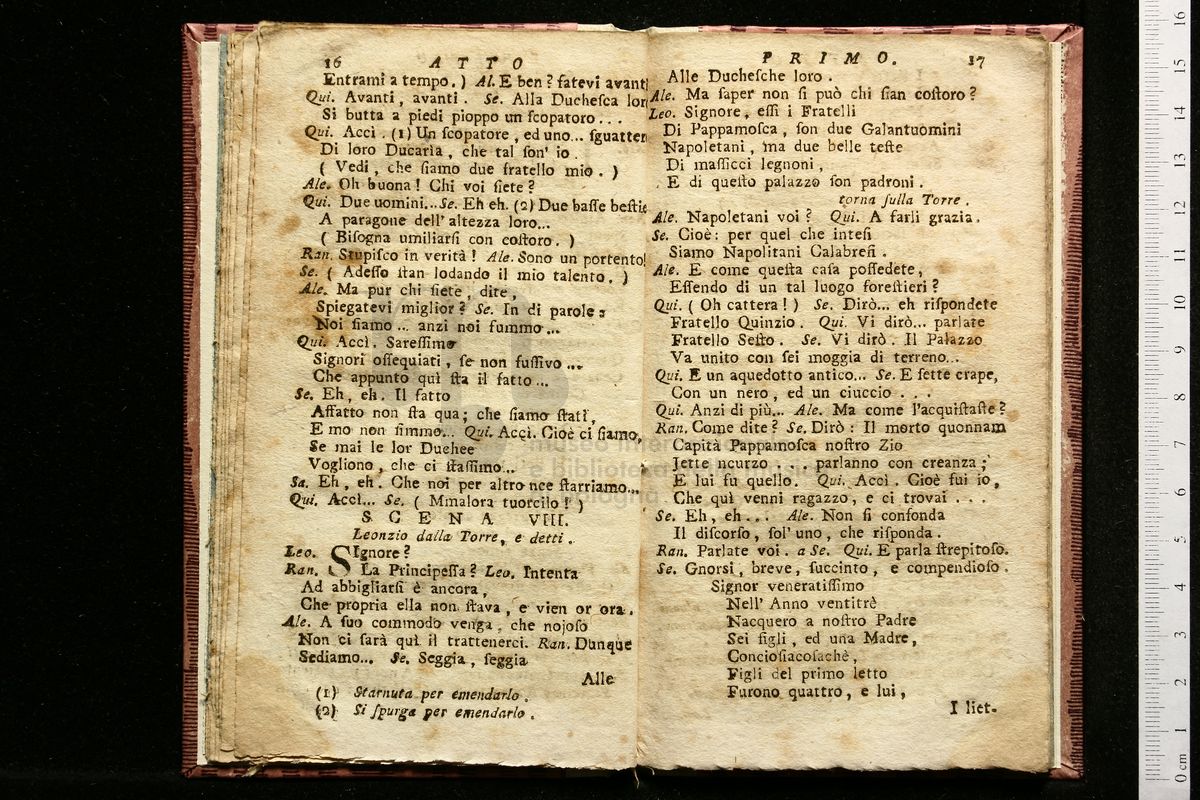 16 ATTO
Entrami a tempo.) Al. E ben? fatevi avanti
Qui. Avanti, avanti. Se. Alla Duchesca lor
Si butta a piedi pioppo un scopatoro...
Qui. Accì. (1) Un scopatore, ed uno... sguatter
Di loro Ducaria, che tal son' io.
( Vedi, che siamo due fratello mio. )
Ale. Oh buona! Chi voi siete?
Qui. Due uomini... Se. Eh eh. (2) Due basse bestie
A paragone dell' altezza loro...
( Bisogna umiliarsi con costoro. )
Ran. Stupisco in verità! Ale. Sono un portento!
Se. ( Adesso stan lodando il mio talento. )
Ale. Ma pur chi siete, dite,
Spiegatevi miglior? Se. In di parole:
Noi siamo... anzi noi fummo...
Qui. Accì. Saressimo
Signori ossequiati, se non fussivo...
Che appunto quì sta il fatto...
Se. Eh, eh. Il fatto
Affatto non sta qua; che siamo stati,
E mo non simmo... Qui. Accì. Cioè ci siamo,
Se mai le lor Duchee
Vogliono, che ci stassimo...
Sa. Eh, eh. Che noi per altro nce starriamo...
Qui. Accì... Se. ( Mmalora tuorcilo! )
SCENA VIII.
Leonzio dalla Torre, e detti.
Leo. SIgnore?
Ran. La Principessa? Leo. Intenta
Ad abbigliarsi è ancora,
Che propria ella non stava, e vien or ora.
Ale. A suo commodo venga, che nojoso
Non ci sarà quì il trattenerci. Ran. Dunque
Sediamo... Se. Seggia, seggia
Alle
(1) Starnuta per emendarlo.
(2) Si spurga per emendarlo.
PRIMO. 17
Alle Duchesche loro.
Ale. Ma saper non si può chi sian costoro?
Leo. Signore, essi i Fratelli
Di Pappamosca, son due Galantuomini
Napoletani, ma due belle teste
Di massicci legnoni,
E di questo palazzo son padroni.
torna sulla Torre.
Ale. Napoletani voi? Qui. A farli grazia.
Se. Cioè: per quel che intesi
Siamo Napolitani Calabresi.
Ale. E come questa casa possedete,
Essendo di un tal luogo forestieri?
Qui. ( Oh cattera! ) Se. Dirò... eh rispondete
Fratello Quinzio. Qui. Vi dirò... parlate
Fratello Sesto. Se. Vi dirò. Il Palazzo
Va unito con sei moggia di terreno...
Qui. E un aquedotto antico... Se. E sette crape,
Con un nero, ed un ciuccio...
Qui. Anzi di più... Ale. Ma come l'acquistaste?
Ran. Come dite? Se. Dirò: Il morto quonnam
Capità Pappamosca nostro Zio
Jette ncurzo.... parlanno con creanza;
E lui fu quello. Qui. Accì. Cioè fui io,
Che quì venni ragazzo, e ci trovai...
Se. Eh, eh... Ale. Non si confonda
Il discorso, sol' uno, che risponda.
Ran. Parlate voi. a Se. Qui. E parla strepitoso.
Se. Gnorsi, breve, succinto, e compendioso.
Signor veneratissimo
Nell' Anno ventitrè
Nacquero a nostro Padre
Sei figli, ed una Madre,
Conciosiacosachè,
Figli del primo letto
Furono quattro, e lui,
I liet-